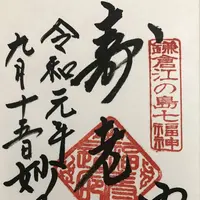 鎌倉江の島七福神
寿老
令和元年
九月十五日妙